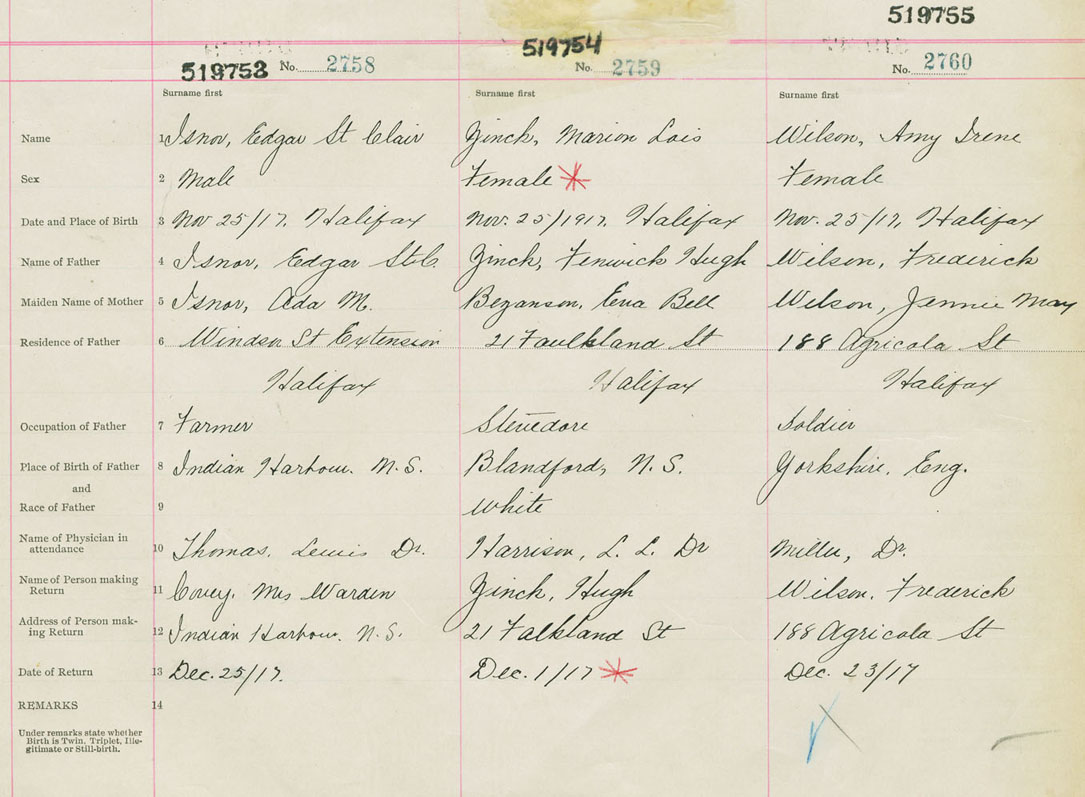 519755
519754
519753 No. 2758 No. 2759 No. 2760
Surname first Surname first Surname first
Name 1 Isnor, Edgar St Clair Zinck, Marion Lois Wilson, Amy Irene
Sex 2 Male Female Female
Date and Place of Birth 3 Nov 25/17, Halifax Nov. 25/1917, Halifax Nov. 25/17, Halifax
Name of Father 4 Isnor, Edgar St C. Zinck, Fenwick Hugh Wilson, Frederick
Maiden Name of Mother 5 Isnor, Ada M. Bezanson, Ena Bell Wilson, Jennie May
Residence of Father 6 Windsor St Extension 21 Faulkland St 188 Agricola St
Halifax Halifax Halifax
Occupation of Father 7 Farmer Stevedore Soldier
Place of Birth of Father 8 Indian Harbour. N.S. Blandford, N.S. Yorkshire, Eng.
and
Race of Father 9 White
Name of Physician in
attendance 10 Thomas, Lewis Dr. Harrison, L. L. Dr Miller, Dr.
Name of Person making
Return 11 Covey, Mrs Warden Zinck, Hugh Wilson, Frederick
Address of Person mak-
ing Return 12 Indian Harbour. N.S. 21 Falkland St 188 Agricola St
Date of Return 13 Dec. 25/17. Dec. 1/17 Dec. 23/17
REMARKS 14
Under remarks state whether
Birth is Twin, Triplet, Ille-
gitimate or Still-birth.